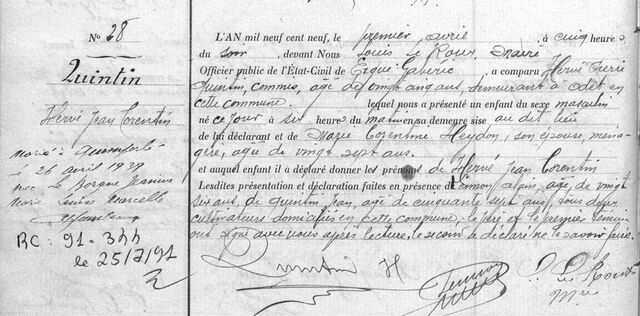 No 28
Quintin
Hervé Jean Corentin
Marié à Quimperlé
le 26 avril 1939
avec Le Borgne Jeanne
Marie Louise Marcelle
RC: 91-344
le 25/7/91
L'AN mil neuf cent neuf, le premier avril, à cinq heures
du soir, devant Nous Louis Le Roux, Maire
Officier public de l'État-Civil de Ergué-Gabéric, a comparu Hervé Pierre
Quintin, commis, âgé de vingt cinq ans, demeurant à Odet en
cette commune. lequel nous a présenté un enfant du sexe masculin
né ce jour à six heures du matin en sa demeure sise au dit lieu
de lui déclarant et de Marie Corentine Heydon, son épouse, ména-
gère, âgée de vingt sept ans.
et auquel enfant il a déclaré donner les prénoms de Hervé Jean Corentin
Lesdites présentation et déclaration faites en présence de Tymon Alain, âgé de vingt
six ans, de Quintin Jean, âgé de cinquante sept ans, tous deux
cultivateurs domiciliés en cette commune, le père et le premier témoin
ont signé avec nous après lecture, le second a déclaré ne le savoir faire.
Quintin H
L. Le Roux
Mre